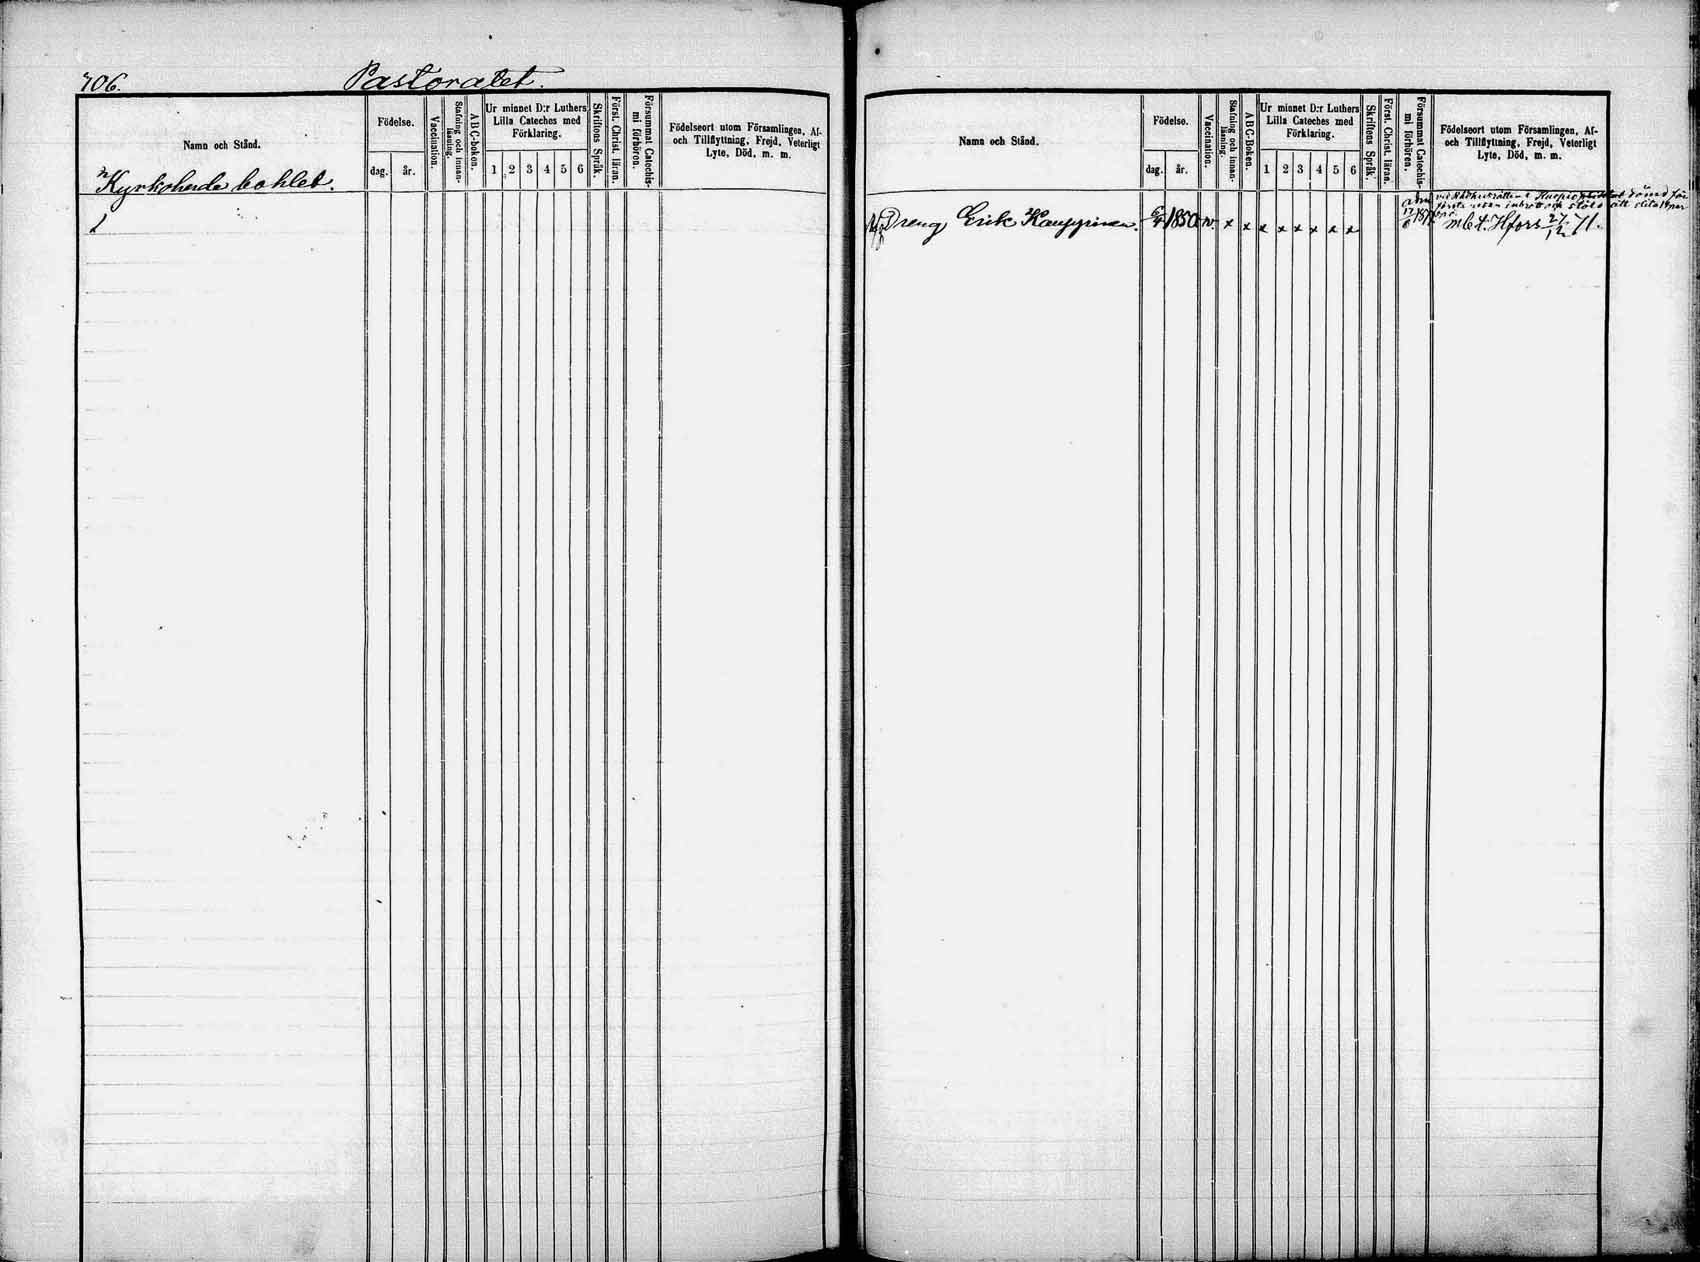 706.
Pastoratet.
Namn och Stånd.
Födelse.
dag. år.
Vaccination.
Stafning och innanläsning.
ABC-boken.
Ur minnet D:r Luthers
Lilla Cateches med
Förklaring.
1 2 3 4 5 6
Skriftens Språk.
Först. Christ. läran.
Försummat Catechismi förhören.
Födelseort utom Församlingen, Af-
och Tillflyttning, Frejd, Veterligt
Lyte, Död, m. m.
Kyrkoherde bohlet.
1
Namn och Stånd.
Födelse.
dag. år.
Vaccination.
Stafning och innanläsning.
ABC-Boken.
Ur minnet D:r Luthers
Lilla Cateches med
Förklaring.
1 2 3 4 5 6
Skriftens Språk.
Först. Christ. läran.
Försummat Catechismi förhören.
Födelseort utom Församlingen, Af-
och Tillflyttning, Frejd, Veterligt
Lyte, Död, m. m.
vid Rådhusrätten i Kuopio dömd för
första resan inbrott och stöld att slita 14 par
Dreng Erik Kauppinen. 1850 v. x x x x x x x x 17/6 1871 m b t. Hfors 27/12 71.